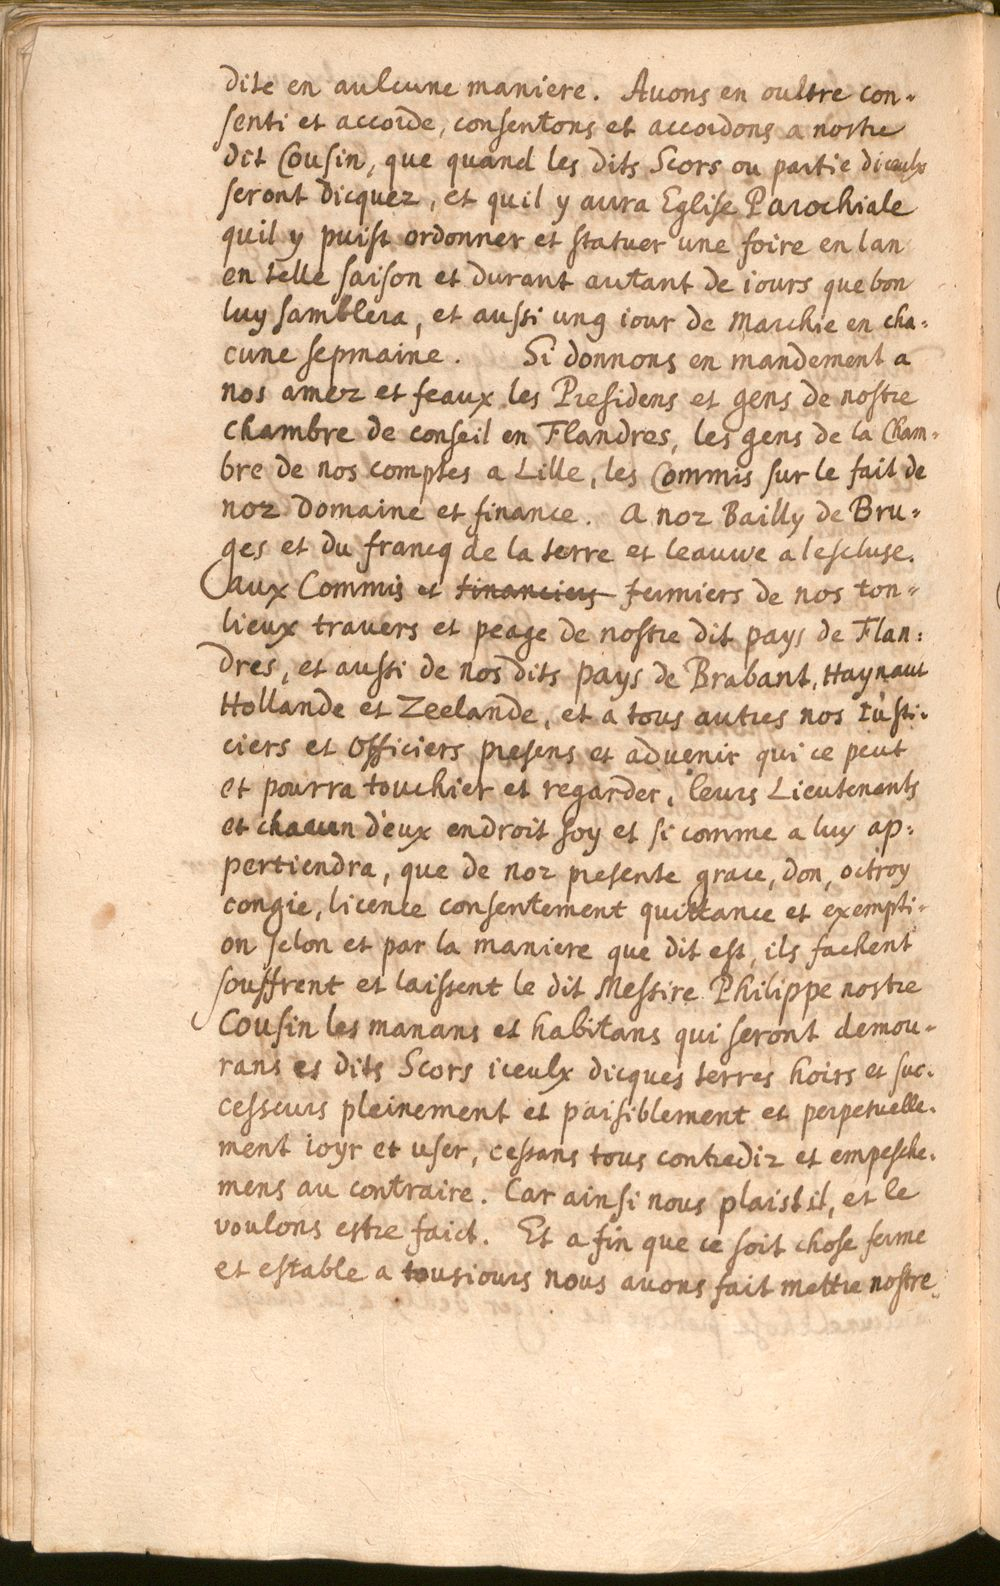 dite en aulcune maniere. Auons en oultre con-
senti et accorde, consentons et accordons a nostre
dit Cousin, que quand les dits Scors ou partie diceulx
seront dicquez, et quil y aura Eglise Parochiale
quil y puist ordonner et statuer une foire en lan
en telle saison et durant autant de iours que bon
luy samblera, et aussi ung iour de Marchie en cha-
cune sepmaine. Si donnons en mandement a
nos amez et feaux les Presidens et gens de nostre
chambre de conseil en Flandres, les gens de la Cham-
bre de nos comptes a Lille, les Commis sur le fait de
noz Domaine et finance. A noz Bailly de Bru-
ges et du francq de la terre et leauwe a lescluse.
aux Commis et financiers fermiers de nos ton-
lieux travers et peage de nostre dit pays de Flan-
dres, et aussi de nos dits pays de Brabant, Haynaut
Hollande et Zeelande, et a tous autres nos Iusti-
ciers et Officiers presens et advenir qui ce peut
et pourra touchier et regarder, leurs Lieutenents
et chacun d'eux endroit soy et si comme a luy ap-
pertiendra, que de noz presente grace, don, octroy
congie, licence consentement quittance et exempti-
on selon et par la maniere que dit est, ils fachent
souffrent et laissent le dit Messire Philippe nostre
Cousin les manans et habitans qui seront demou-
rans es dits Scors iceulx dicques terres hoirs et suc-
cesseurs pleinement et paisiblement et perpetuelle-
ment ioyr et user, cessans tous contrediz et empesche-
mens au contraire. Car ainsi nous plaist il, et le
voulons estre faict. Et a fin que ce soit chose ferme
et estable a tousiours nous auons fait mettre nostre